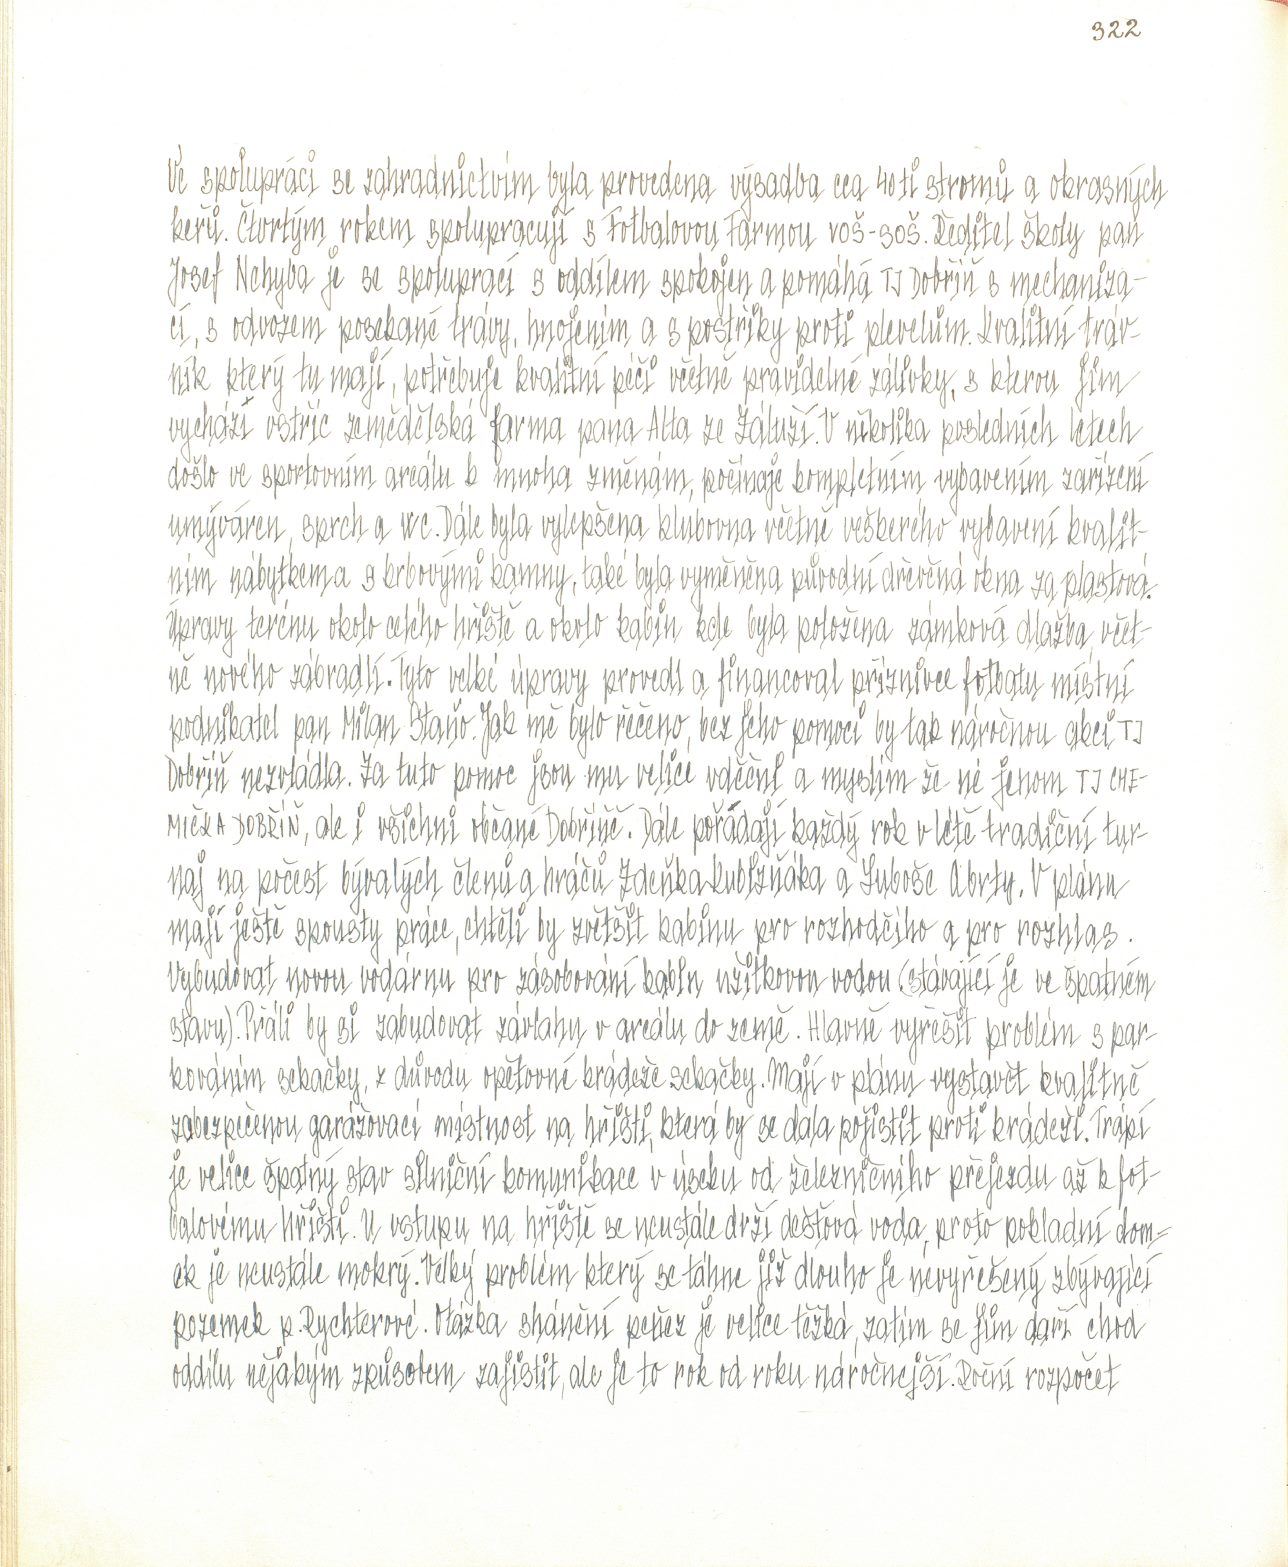 322
Ve spolupráci se zahradnictvím byla provedena výsadba cca 40ti stromů a okrasných
keřů. Čtvrtým rokem spolupracují s Fotbalovou Farmou VOŠ-SOŠ. Ředitel školy pan
Josef Nehyba je se spoluprací s oddílem spokojen a pomáhá TJ Dobříň s mechaniza-
cí, s odvozem posekané trávy, hnojením a s postřiky proti plevelům. Kvalitní tráv-
ník který tu mají, potřebuje kvalitní péči včetně pravidelné zálivky, s kterou jim
vychází vstříc zemědělská farma pana Alta ze Záluží. V několika posledních letech
došlo ve sportovním areálu k mnoha změnám, počínaje kompletním vybavením zařízení
umýváren, sprch a WC. Dále byla vylepšena klubovna včetně veškerého vybavení kvalit-
ním nábytkem a s krbovými kamny, také byla vyměněna původní dřevěná okna za plastová.
Úpravy terénu okolo celého hřiště a okolo kabin kde byla položena zámková dlažba, včet-
ně nového zábradlí. Tyto velké úpravy provedl a financoval příznivec fotbalu místní
podnikatel pan Milan Štaño. Jak mě bylo řečeno, bez jeho pomoci by tak náročnou akci TJ
Dobříň nezvládla. Za tuto pomoc jsou mu velice vděční a myslím že né jenom TJ CHE-
MIČKA DOBŘÍŇ, ale i všichni občané Dobříně. Dále pořádají každý rok v létě tradiční tur-
naj na počest bývalých členů a hráčů Zdeňka Kubizňáka a Luboše Abrty. V plánu
mají ještě spousty práce, chtěli by zvětšit kabinu pro rozhodčího a pro rozhlas.
Vybudovat novou vodárnu pro zásobování kabin užitkovou vodou (stávající je ve špatném
stavu). Přáli by si zabudovat závlahu v areálu do země. Hlavně vyřešit problém s par-
kováním sekačky, z důvodu opětovné krádeže sekačky. Mají v plánu vystavět kvalitně
zabezpečenou garážovací místnost na hřišti, která by se dala pojistit proti krádeži. Trápí
je velice špatný stav silniční komunikace v úseku od železničního přejezdu až k fot-
balovému hřišti. U vstupu na hřiště se neustále drží dešťová voda, proto pokladní dom-
ek je neustále mokrý. Velký problém který se táhne již dlouho je nevyřešený zbývající
pozemek p. Rychterové. Otázka shánění peněz je velice těžká, zatím se jim daří chod
oddílu nějakým způsobem zajistit, ale je to rok od roku náročnější. Roční rozpočet